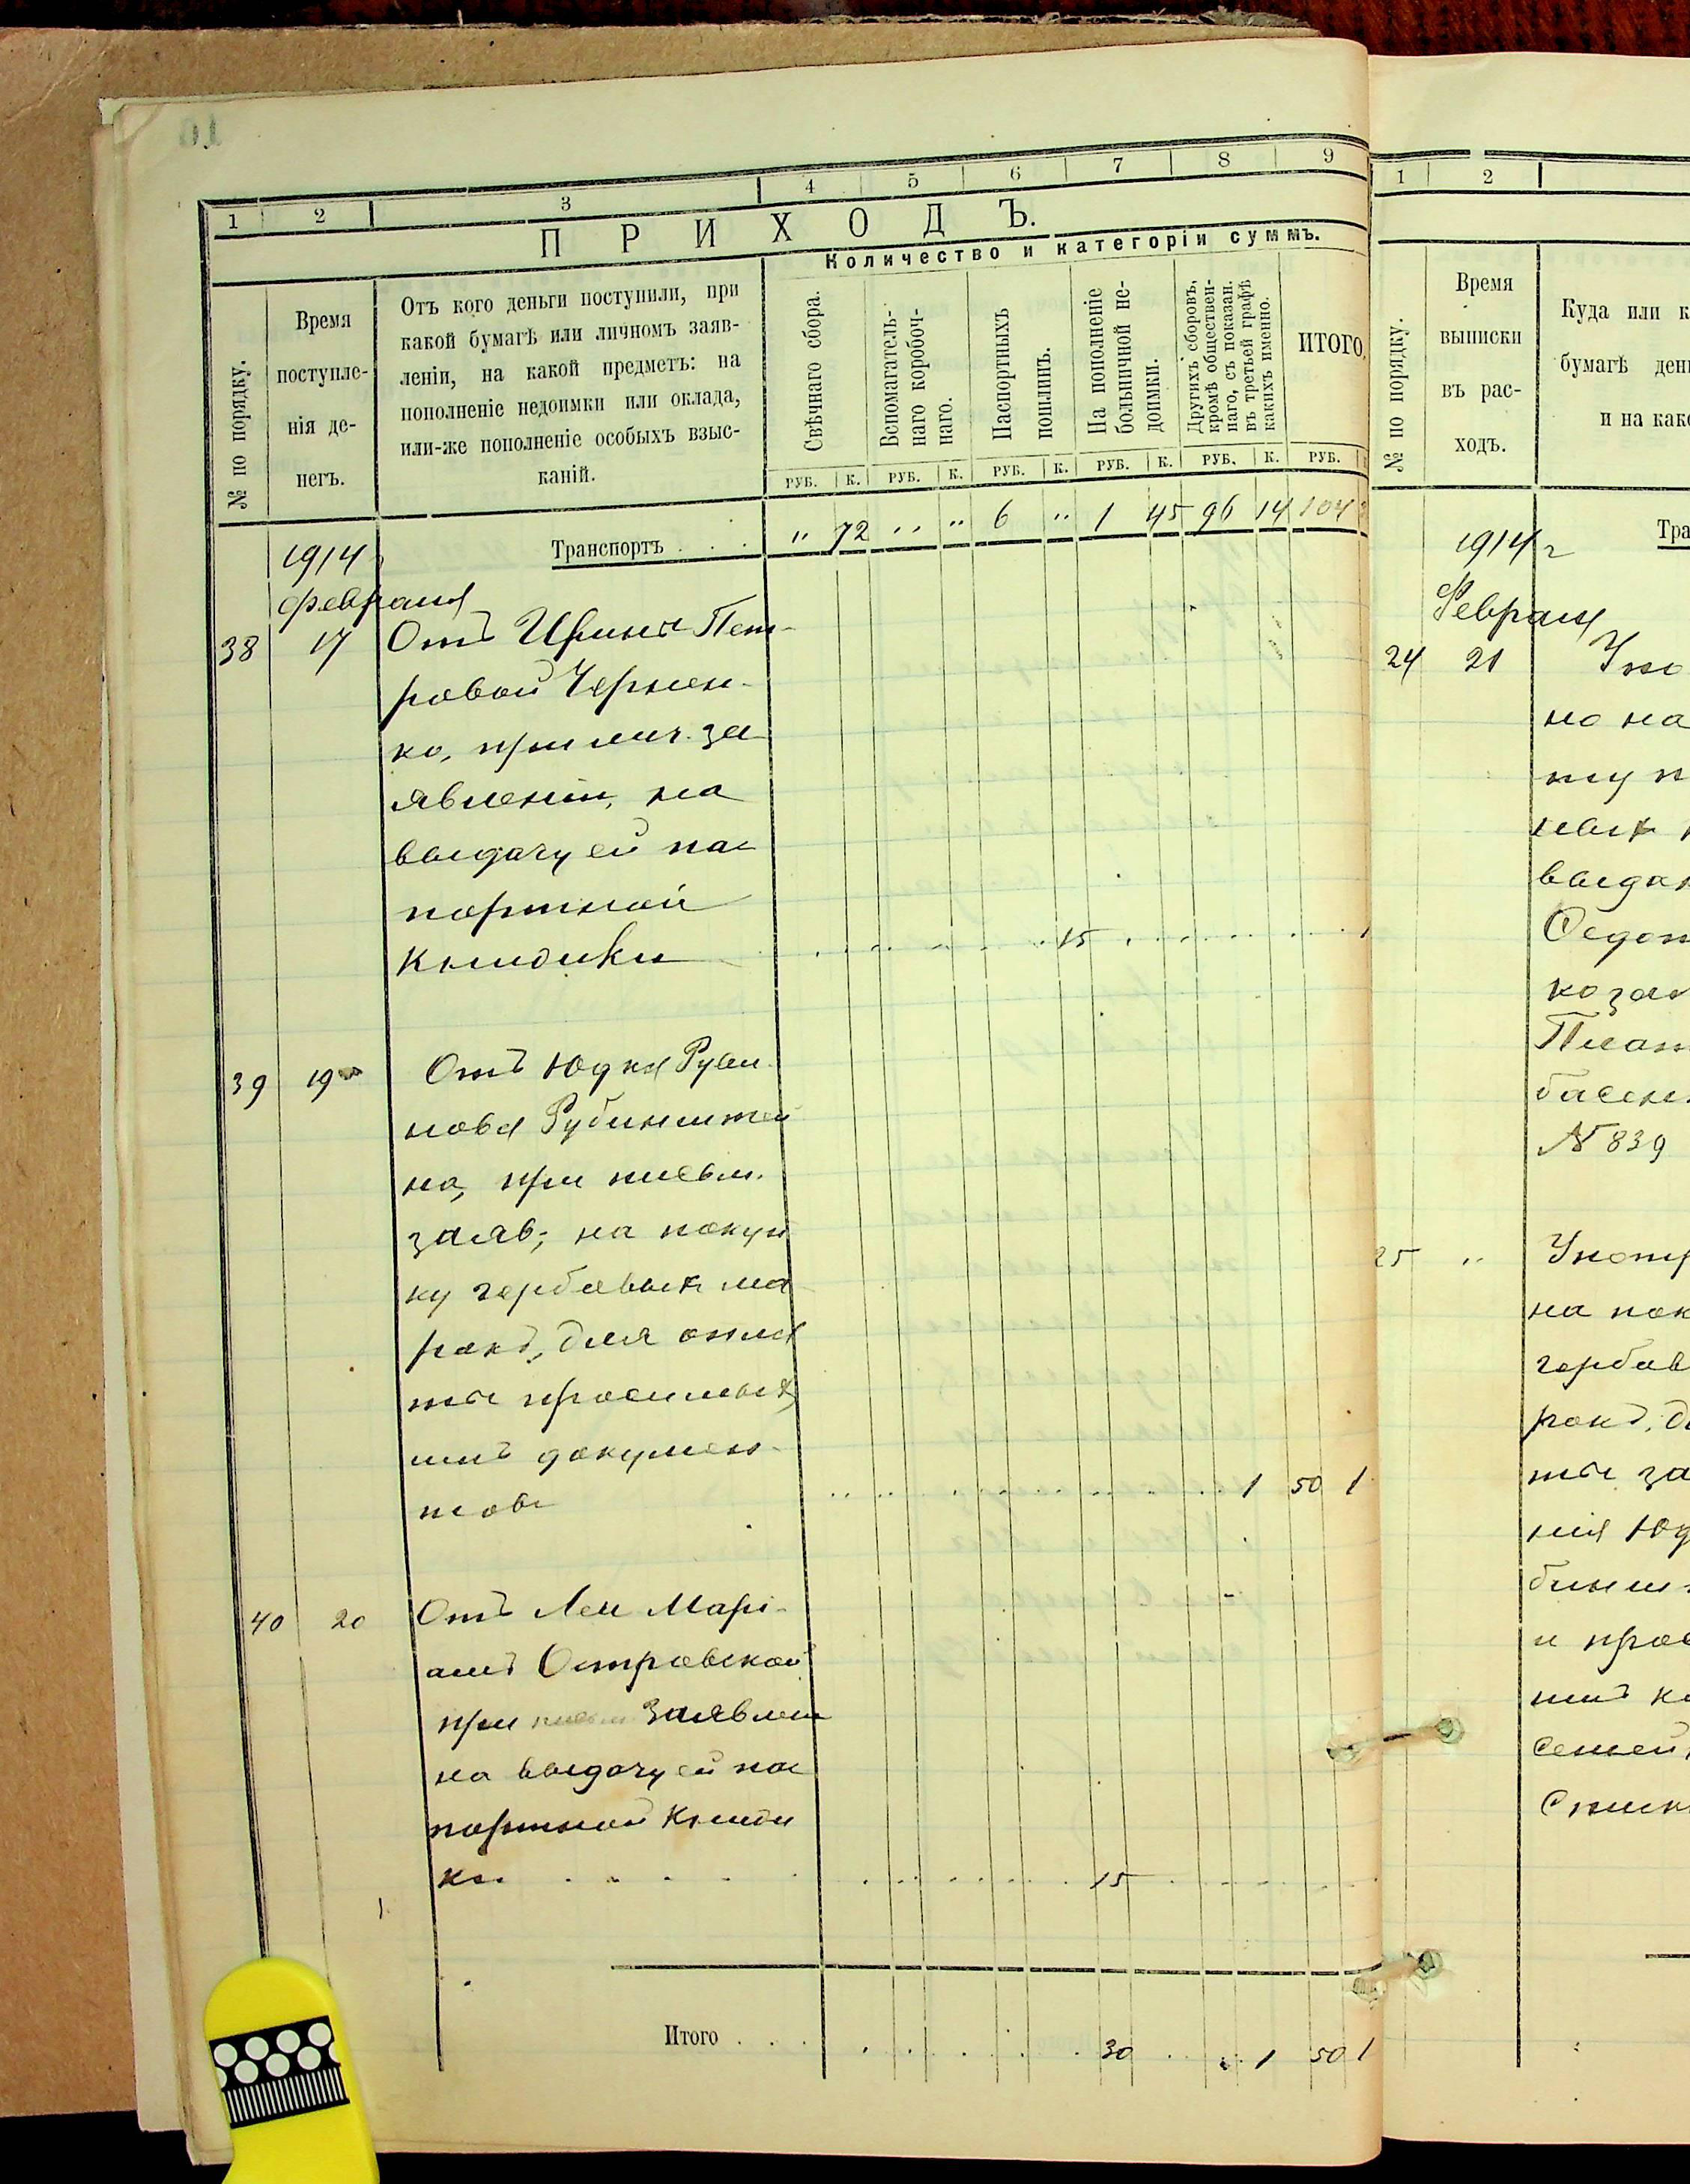 1 2 3 4 5 6 7 8 9
ПРИХОДЪ.
Количество и категоріи суммъ.
№ по порядку.
Время
поступле-
нія де-
негъ.
Отъ кого деньги поступили, при
какой бумагѣ или личномъ заяв-
леніи, на какой предметъ: на
пополненіе недоимки или оклада,
или-же пополненіе особыхъ взыс-
каній.
Свѣчнаго сбора.
Вспомагатель-
наго коробоч-
наго.
Паспортныхъ
пошлинъ.
На пополненіе
больничной не-
доимки.
Другихъ сборовъ,
кромѣ обществен-
наго, съ показан.
въ третьей графѣ
какихъ именно.
ИТОГО
РУБ. К. РУБ. К. РУБ. К. РУБ. К. РУБ. К. РУБ.
Транспортъ . . . " 72 " " 6 " 1 45 96 14 104
1914
февраля
38 17 Отъ Ирины Пет-
ровой Чернен-
ко, при лич. за
явленіи, на
выдачу ей пас
портной
книжки 15
39 19 Отъ Юдки Руви
нова Рубинштей
на, при письм.
заяв; на покуп
ку гербовыхъ ма
рокъ, для опла
ты просимыхъ
имъ докумен-
товъ 1 50 1
40 20 Отъ Леи Марі-
амъ Островской
при письм заявлен
на выдачу ей пас
портной книж
ки 15
Итого . . . 30 1 50 1
1 2
№ по порядку.
Время
выписки
въ рас-
ходъ.
Куда или к
бумагѣ ден
и на как
Тра
1914 г
Февраля
24 21 Упо
но на
ту п
выдан
Федот
козач
Плат
№ 839
25 " Употр
на пок
гербов
рокъ, д
ты за
нія Юд
бинш
и прос
имъ к
семей
списк